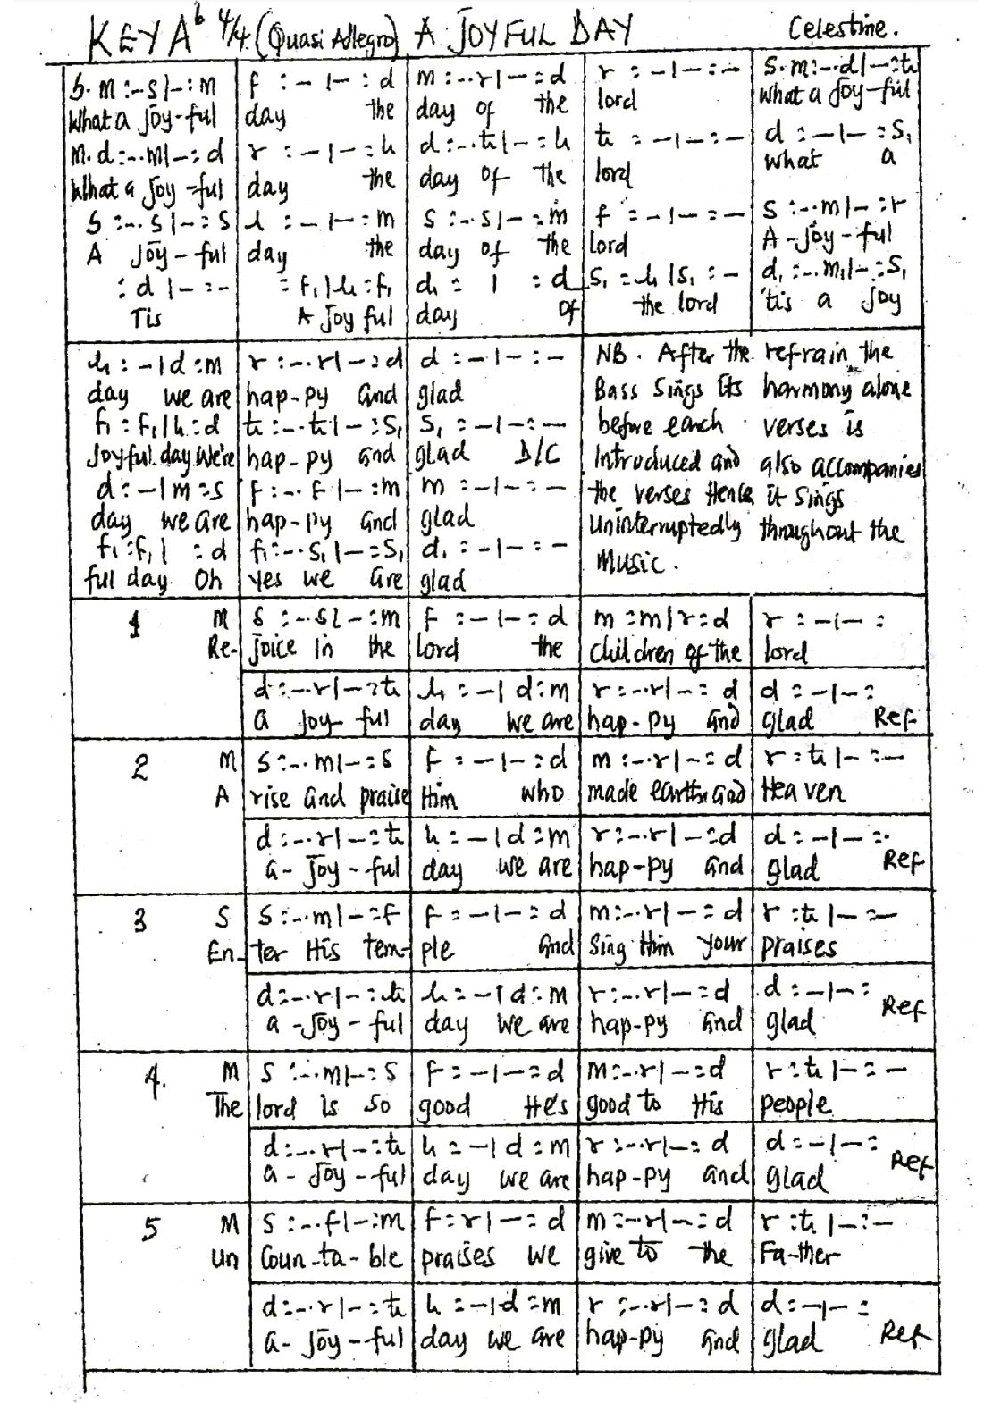 KEY Ab 4/4. (Quasi Allegro) A JOYFUL DAY Celestine.
s. m :-. s | - : m f : - | - : d m : -. r | - : d r : - | - : - s. m : -. d | - : t₁
What a Joy-ful day the day of the lord What a Joy-ful
m. d : -. m | - : d r : - | - : l₁ d : -. t₁ | - : l₁ t₁ : - | - : - d : - | - : s₁
What a Joy-ful day the day of the lord what a
s : -. s | - : s l : - | - : m s : -. s | - : m f : - | - : - s : -. m | - : r
A Joy-ful day the day of the lord A-Joy-ful
: d | - : - : f₁ | l₁ : f₁ d₁ : | : d s₁ : l₁ | s₁ : - d₁ : -. m₁ | - : s₁
Tis A Joy ful day of the lord 'tis a Joy
l₁ : - | d : m r : -. r | - : d d : - | - : - NB. After the refrain the
day we are hap-py and glad Bass Sings Its harmony alone
f₁ : f₁ | l₁ : d t₁ : -. t₁ | - : s₁ s₁ : - | - : - before each verses is
Joyful day We're hap-py and glad D/C Introduced and also accompanies
d : - | m : s f : -. f | - : m m : - | - : - the verses Hence it Sings
day we are hap-py and glad Uninterruptedly throughout the
f₁ : f₁ | : d f₁ : -. s₁ | - : s₁ d₁ : - | - : - Music.
ful day Oh yes we are glad
1 M s : -. s | - : m f : - | - : d m : m | r : d r : - | - :
Re- joice in the lord the children of the lord
d : -. r | - : t₁ l₁ : - | d : m r : -. r | - : d d : - | - :
a joy-ful day we are hap-py and glad Ref
2 M s : -. m | - : s f : - | - : d m : -. r | - : d r : t₁ | - : -
A rise and praise Him who made earth and Heaven
d : -. r | - : t₁ l₁ : - | d : m r : -. r | - : d d : - | - : -
a-Joy-ful day we are hap-py and glad Ref
3 S s : -. m | - : f f : - | - : d m : -. r | - : d r : t₁ | - : -
En- ter His tem- ple and Sing Him your praises
d : -. r | - : t₁ l₁ : - | d : m r : -. r | - : d d : - | - :
a-Joy-ful day we are hap-py and glad Ref
4. M s : -. m | - : s f : - | - : d m : -. r | - : d r : t₁ | - : -
The lord is so good He's good to His people
d : -. r | - : t₁ l₁ : - | d : m r : -. r | - : d d : - | - :
a-Joy-ful day we are hap-py and glad Ref
5 M s : -. f | - : m f : r | - : d m : -. r | - : d r : t₁ | - : -
Un Coun-ta-ble praises we give to the Fa-ther
d : -. r | - : t₁ l₁ : - | d : m r : -. r | - : d d : - | - :
a-Joy-ful day we are hap-py and glad Ref